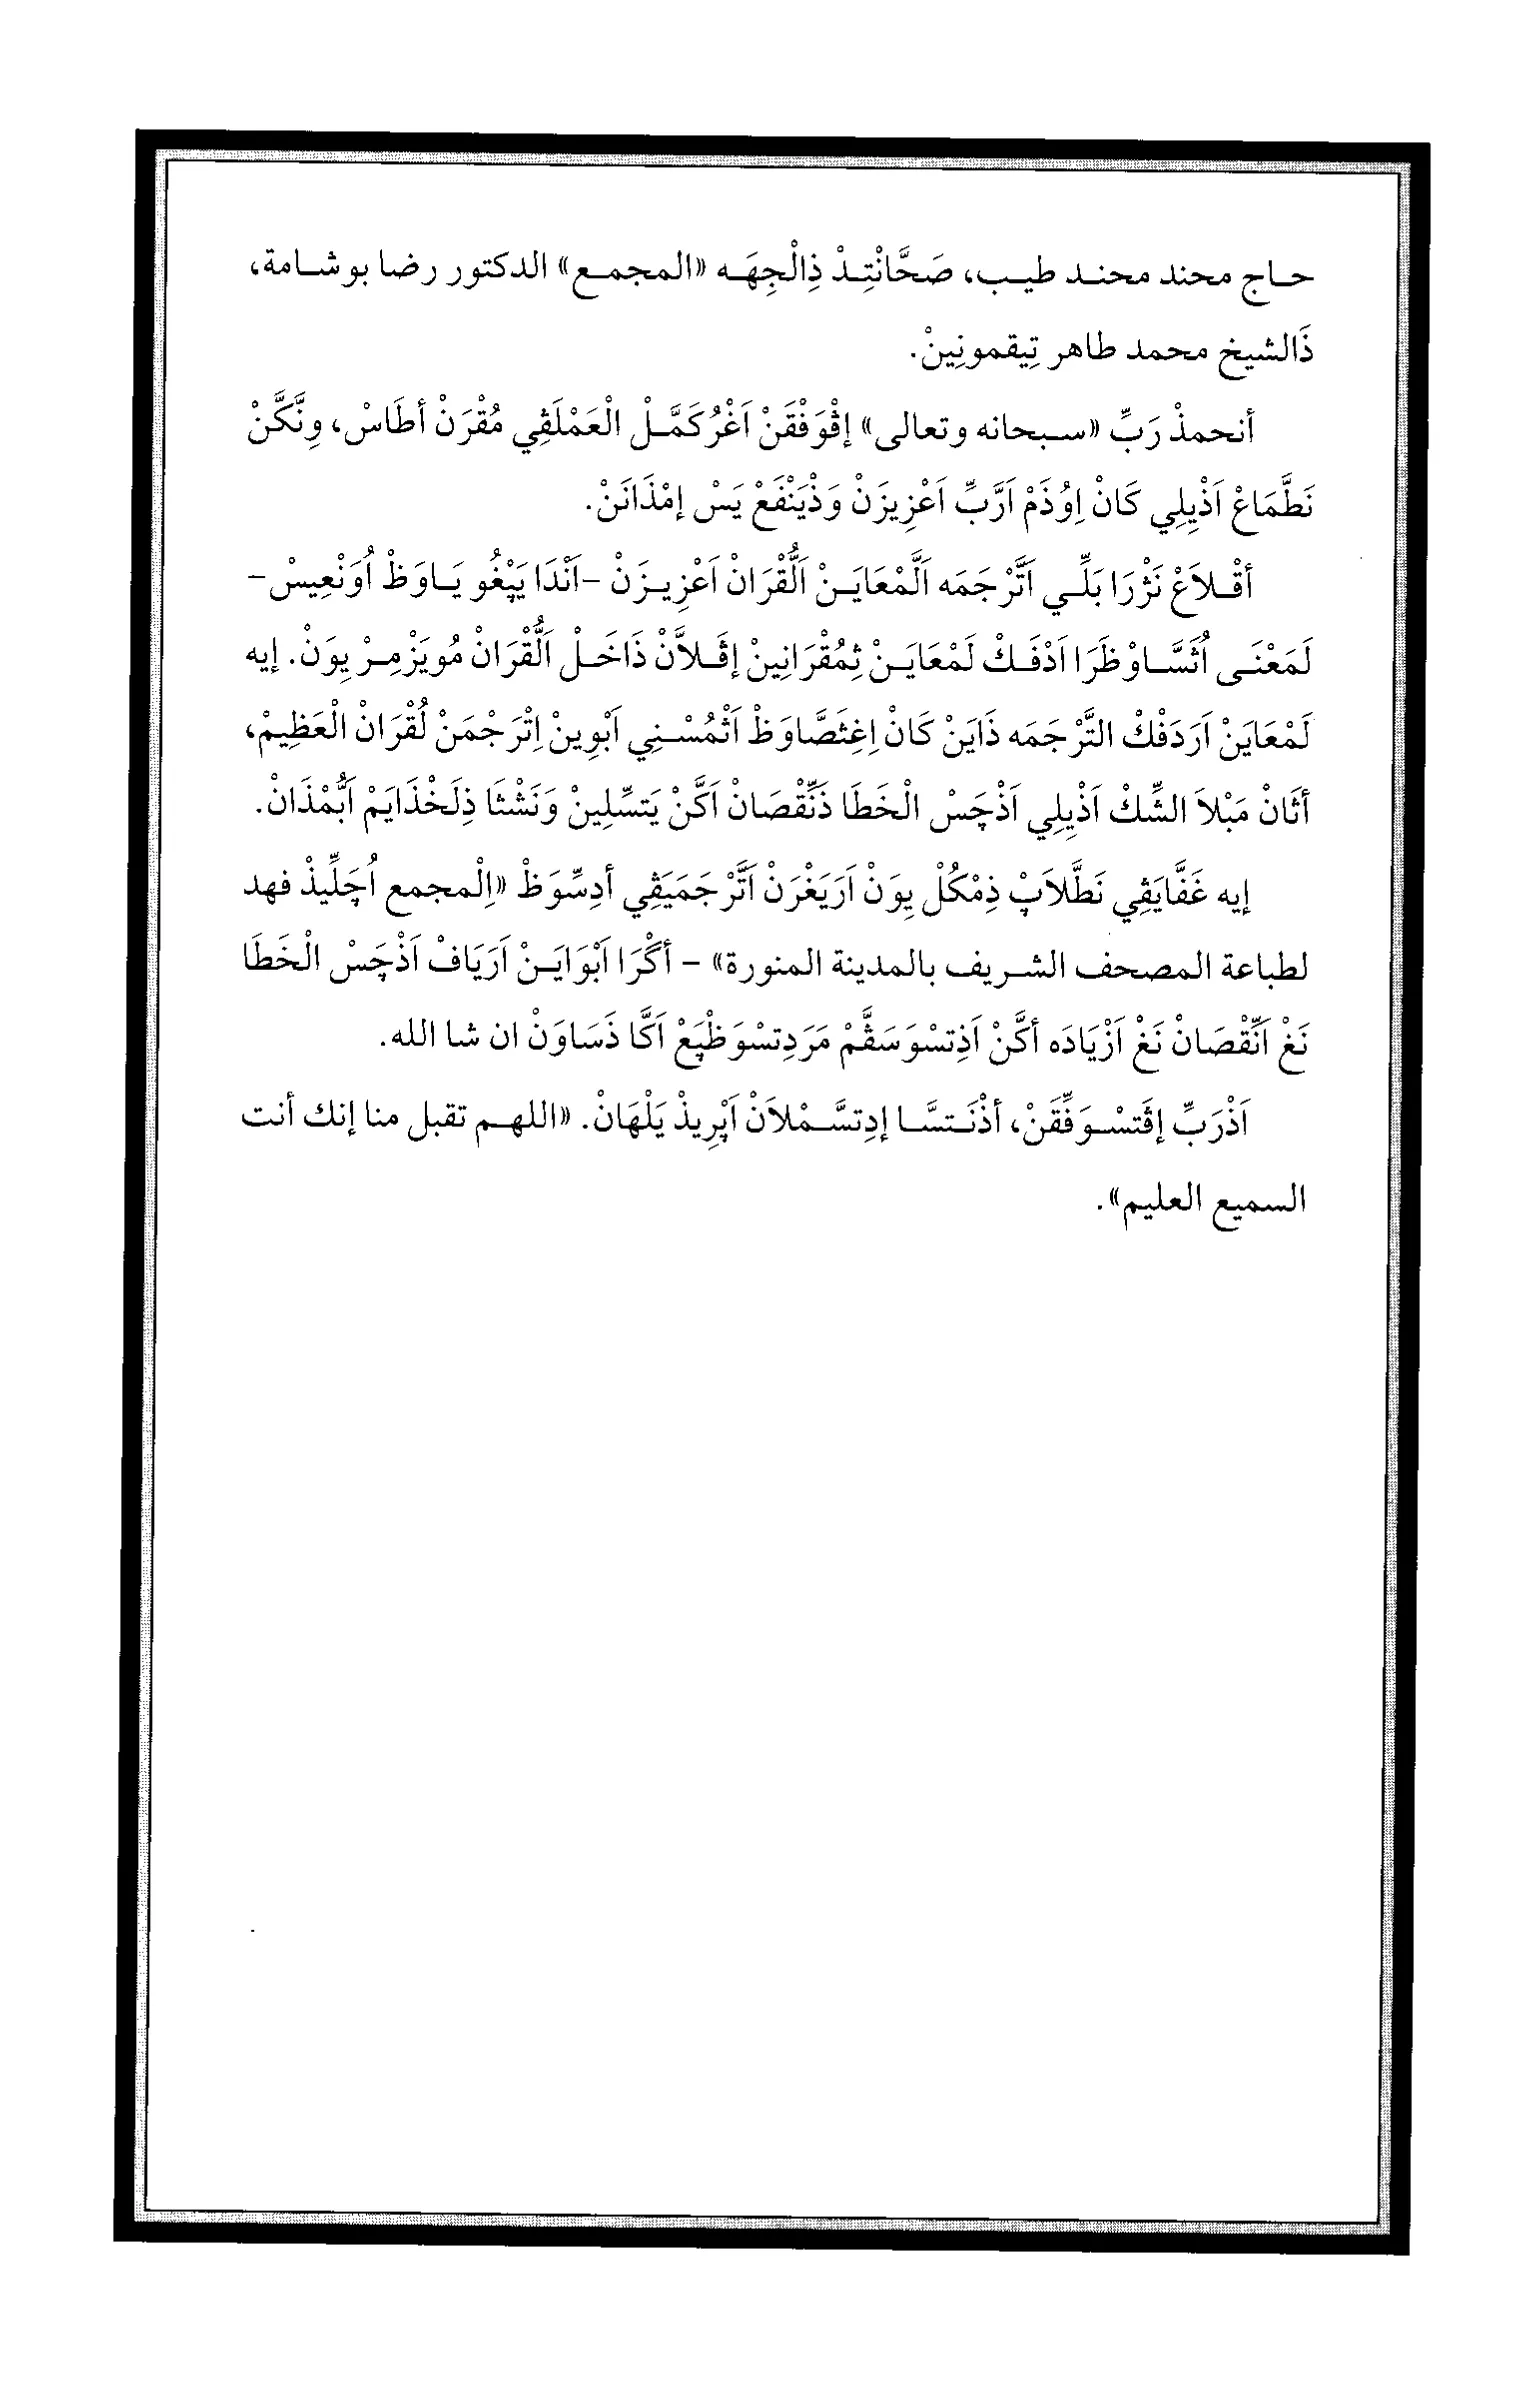 حاج محند محند طيب، صَحَّانْتِذْ ذِالْجِهَه «المجمع» الدكتور رضا بوشامة،
ذَالشيخ محمد طاهر تِيقمونِينْ.
أنحمذْ رَبِّ «سبحانه وتعالى» إِڤْوَفْقَنْ اَغْرُكَمَّلْ الْعَمْلَڤِي مُقْرَنْ أطَاسْ، وِنَّكَّنْ
نَطَّمَاعْ اَذْيِلِي كَانْ اِوُذَمْ اَرَّبِّ اَعْزِيزَنْ وَذْيَنْفَعْ يَسْ إِمْذَانَنْ.
أڤْلاَغْ نَژْرَا بَلِّي اَتَّرْجَمَه اَلَّمْعَايَنْ اَلُّقْرَانْ اَعْزِيزَنْ -اَنْدَا يَپْغُو يَاوَظْ اُوَنْعِيسْ-
لَمَعْنَى اُثَسَّاوْظَرَا اَدْفَكْ لَمْعَايَنْ ثِمُقْرَانِينْ إِڤْلاَّنْ ذَاخَلْ اَلُّقْرَانْ مُويَزْمِرْ يِوَنْ. إيه
لَمْعَايَنْ اَرَدَفْكْ التَّرْجَمَه ذَايَنْ كَانْ اِغِثَصَّاوَظْ اَثْمُسْنِي اَبْوِينْ اِتْرَجْمَنْ لُقْرَانْ الْعَظِيمْ،
أثَانْ مَبْلاَ الشِّكْ اَذْيِلِي اَذْچَسْ الْخَطَا ذَنِّقْصَانْ اَكَّنْ يَتسِّلِينْ وَنَشْثَا ذِلَخْذَايَمْ اَبُّمْذَانْ.
إيه غَفَّايَڤِي نَطَّلاَپْ ذِمْكُلْ يِوَنْ اَرَيَغْرَنْ اَتَّرْجَمَيَڤِي أدِسِّوَظْ «اِلْمجمع اُچَلِّيذْ فهد
لطباعة المصحف الشريف بالمدينة المنورة» - أكْرَا اَبْوَايَنْ اَرَيَافْ اَذْچَسْ الْخَطَا
نَغْ اَنِّقْصَانْ نَغْ اَزْيَادَه أكَّنْ اَذِتسْوَسَڤَّمْ مَرَدِتسْوَظْپَعْ اَكَّا ذَسَاوَنْ ان شا الله.
اَذْرَبِّ إِڤَتسْوَفِّقَنْ، أذْنَتسَّا إِدِتسَّمْلاَنْ اَپْرِيذْ يَلْهَانْ. «اللهم تقبل منا إنك أنت
السميع العليم».